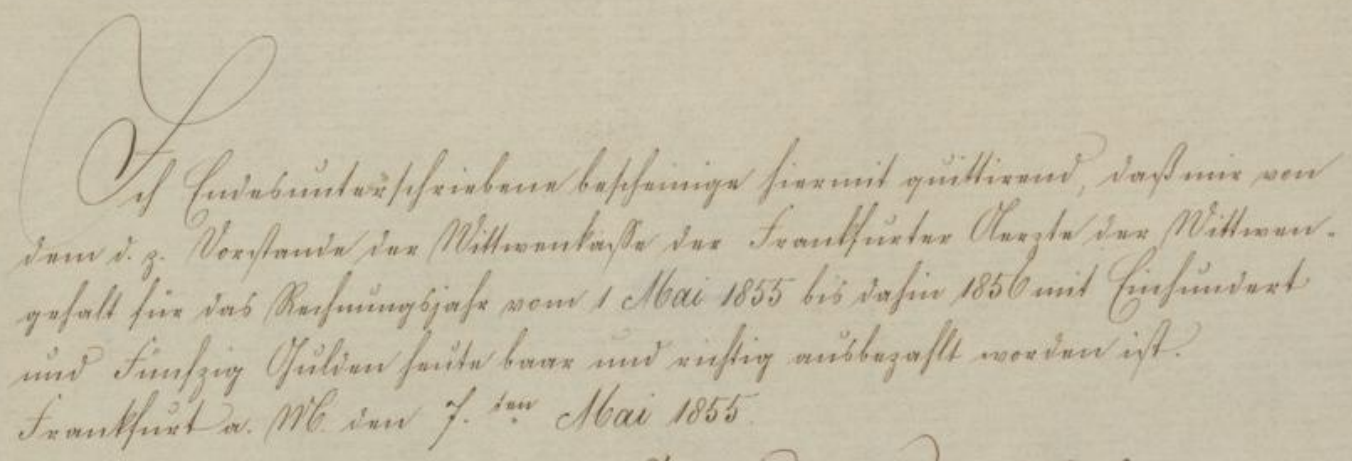 Ich Endesunterschriebene bescheinige hiermit quittirend, daß mir von
dem d. z. Vorstande der Wittwenkasse der Frankfurter Aerzte der Wittwen-
gehalt für das Rechnungsjahr vom 1 Mai 1855 bis dahin 1856 mit Einhundert
und Fünfzig Gulden heute baar und richtig ausbezahlt worden ist.
Frankfurt a. M. den 7. ten Mai 1855.